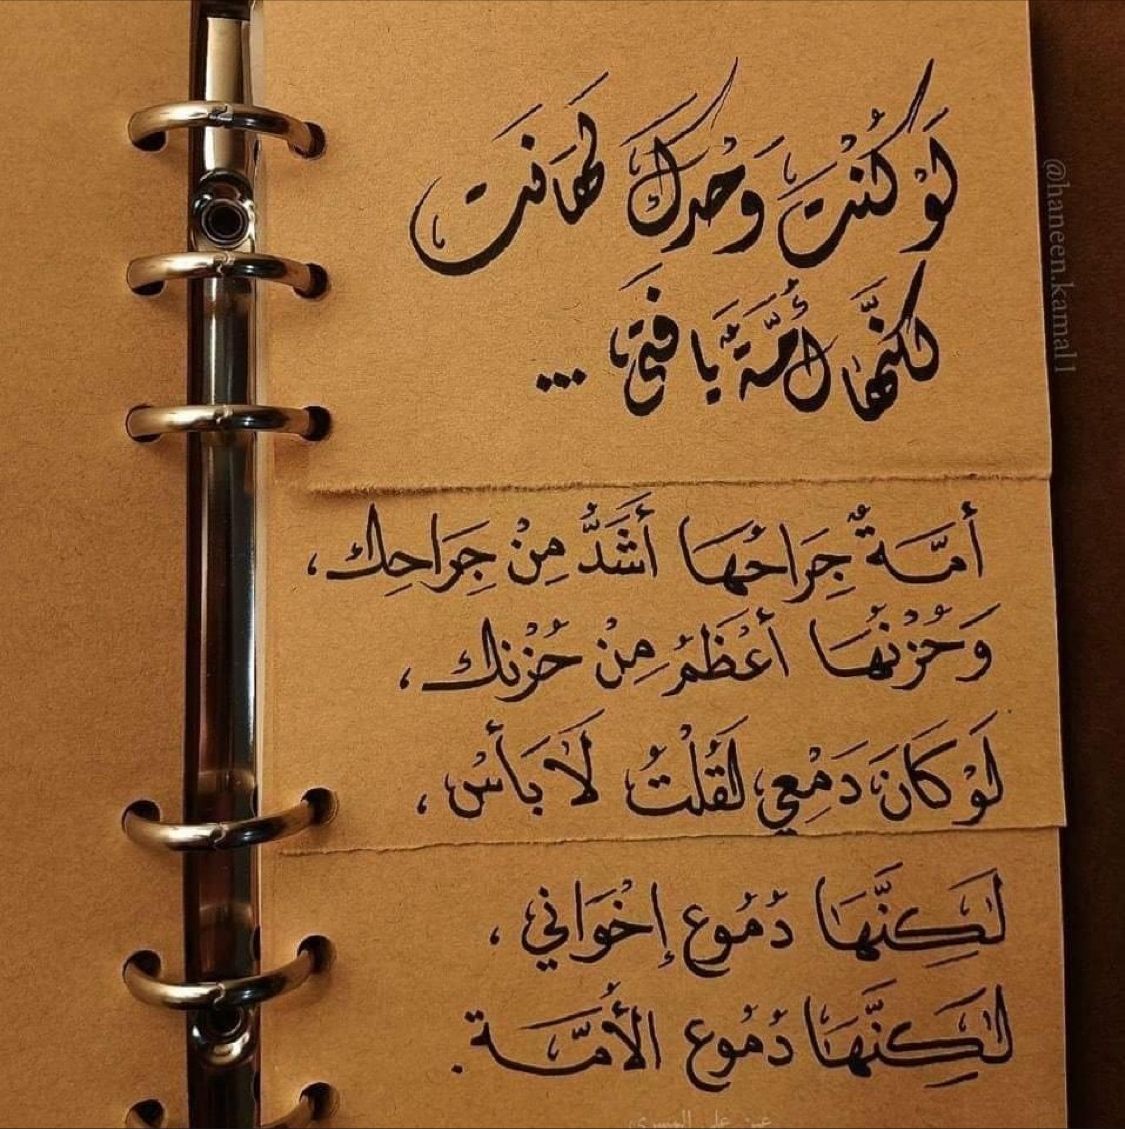 لَوْ كُنْتَ وَحْدَكَ لَهَانَت
لكنَّهَا أُمَّةٌ يَا فَتَى ...
أمَّةٌ جِرَاحُهَا أَشَدُّ مِنْ جِرَاحِك،
وَحُزْنُهَا أعْظَمُ مِنْ حُزْنك،
لَوْ كَانَ دَمْعِي، لَقُلْتُ لَا بَأسْ،
لَكِنَّهَا دُمُوع إخْوَاني،
لَكِنَّهَا دُمُوع الأُمَّة.
@haneen.kamal1